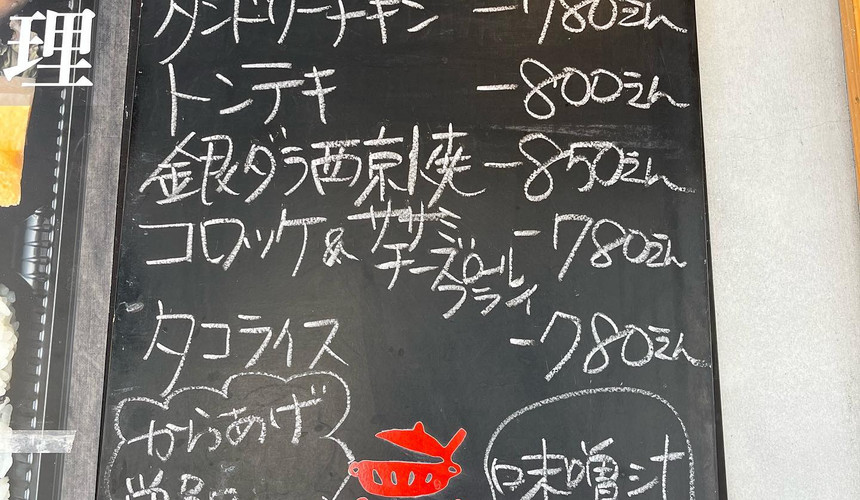 理
タンドリーチキン -780えん
トンテキ -800えん
銀ダラ西京焼 -850えん
コロッケ&ササミチーズロールフライ -780えん
タコライス -780えん
からあげ
味噌汁